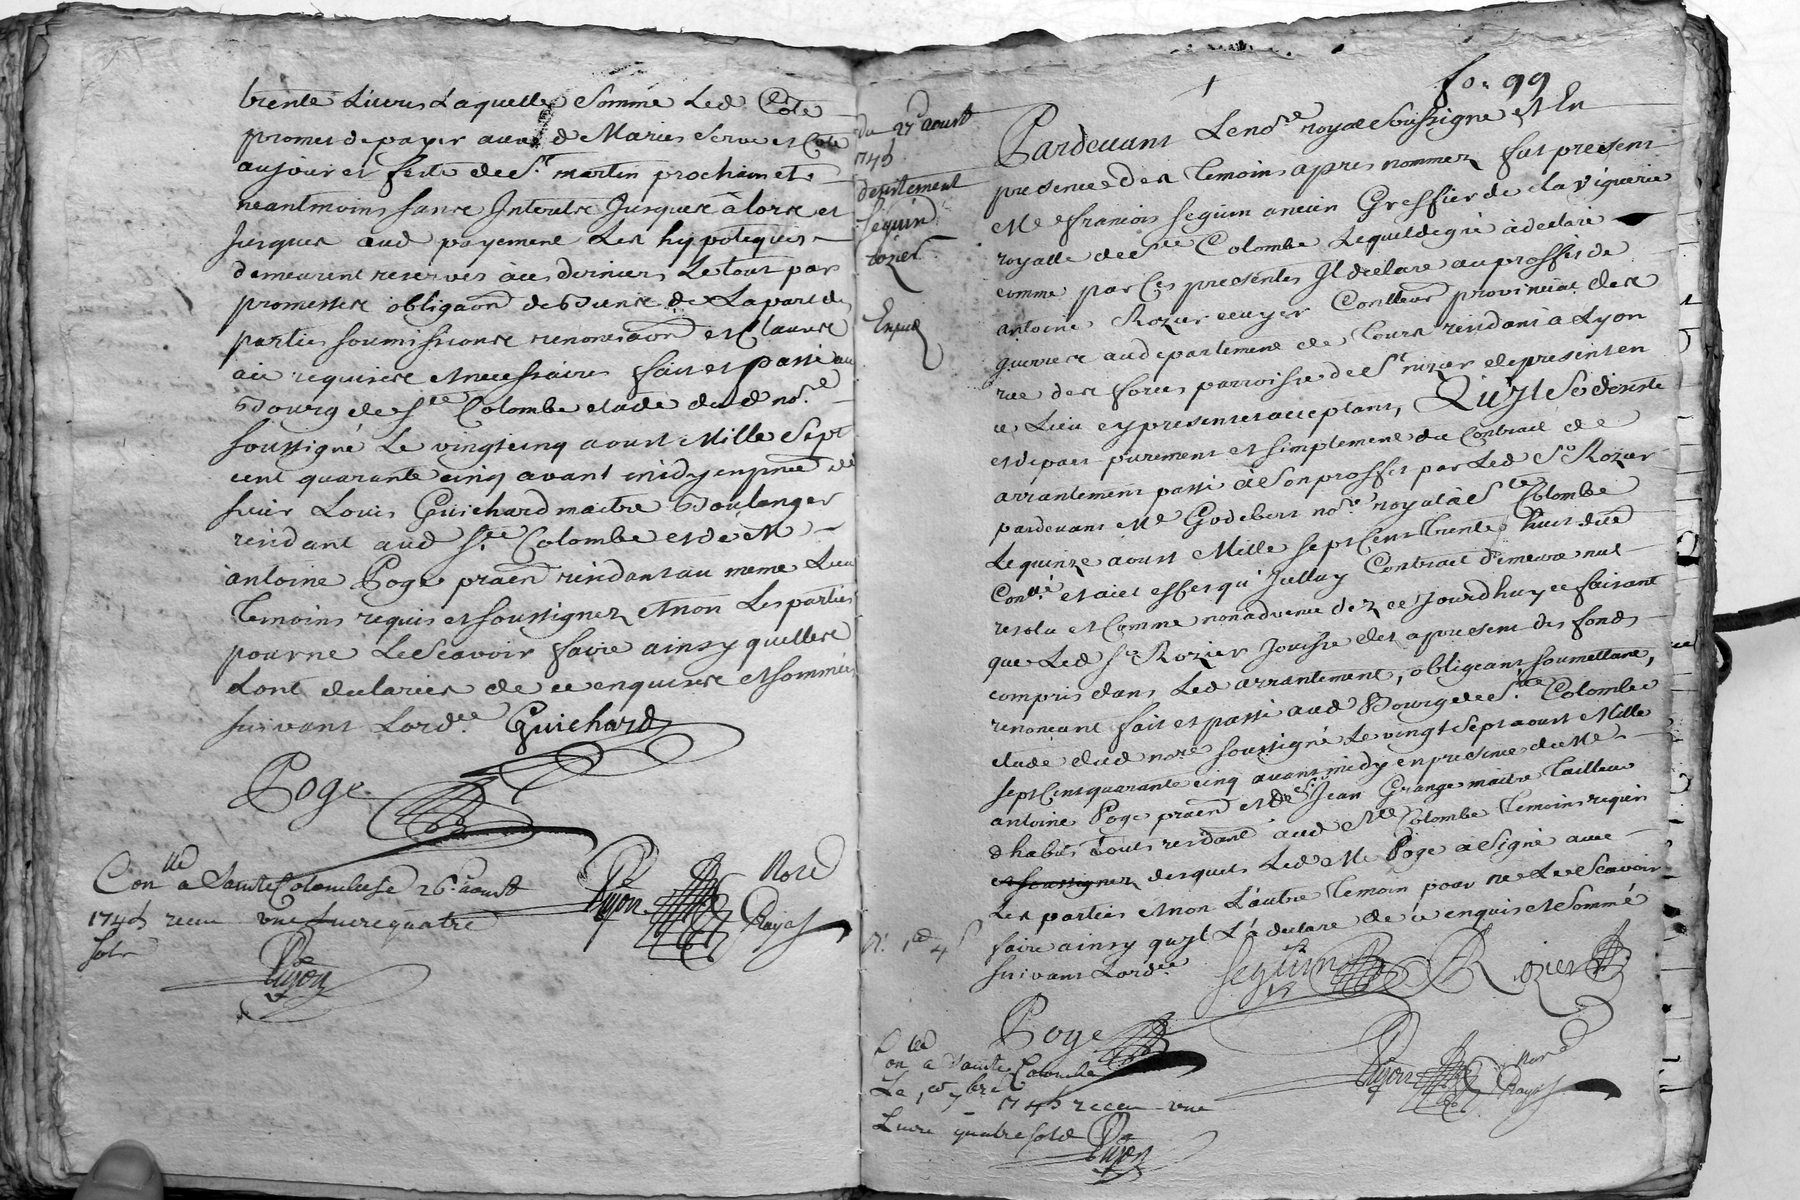 trente Livres Laquelle Somme Led Cote
promet de payer auxd de Maries Serve et Cote
au jour et feste de St martin prochain et
neantmoins sans Interest Jusques à lors et
Jusques aud payement Les hypoteques
demeurent reservés à ces derniers Le tout par
promesse obligaon despens de La part des
parties soumissions renonciaon et Clauses
à ce requises et necessaires fait et passé au
Bourg de Ste Colombe etude dud nore
soussigné Le vingt cinq aoust Mille Sept
cent quarante cinq avant midy en pnce de
sieur Louis Guichard maitre Boulanger
residant aud Ste Colombe et de Me
antoine Poge praen residant au meme Lieu
temoins requis et soussignez et non Les parties
pour ne Le Scavoir faire ainsy quelles
L'ont declarées de ce enquises et sommées
suivant L'ordce Guichard
Poge
Conllé a Sainte Colombe le 26e aoust
1745 receu une Livre quatre
sols
Pujon
Pujon Nore Royal
fo: 99
du 27 aoust
1745
desistement
Seguin
Rozier
Exped
Pardevant Le nore royal Soussigné et En
presence des temoins apres nommez fut present
Me francois Seguin ancien Greffier de la viguerie
royalle de Ste Colombe Lequel de gré à declaré
comme par Ces presentes Il declare au proffit de
antoine Rozier ecuyer Conller provincial des
guerres au departement de Tours residant à Lyon
rue des forces parroisse de St nizier de present en
ce Lieu cy present et acceptant, Qu'Il Se desiste
et depart purement et simplement du Contract de
arrantement passé à Son proffit par Led Sr Rozier
pardevant Me Godebert nore royal à Ste Colombe
Le quinze aoust Mille sept Cent trente huit duë
Conllé et à cet effet qu'Icelluy Contract demeure nul
resolu et Comme non advenu dez ce Jourdhuy ce faisant
que Led Sr Rozier Jouisse dez apresent des fonds
compris dans Led arrantement, obligeant, soumettant,
renonceant fait et passé aud Bourg de Ste Colombe
etude dud nore soussigné Le vingt sept aoust Mille
sept Cent quarante cinq avant midy en presence de Me
antoine Poge praen et de Sr Jean Grange maitre tailleur
d'habits tous residant aud Ste Colombe temoins requis
et soussignez desquels Led Me Poge à Signé avec
Les parties et non L'autre temoin pour ne Le Scavoir
faire ainsy qu'Il L'à declaré de ce enquis et Sommé
suivant Lordce Seguin Rozier
Poge
Conllé a Sainte Colombe
Le 1er 7bre 1745 receu une
Livre quatre sols
Pujon
Pujon Nore Royal